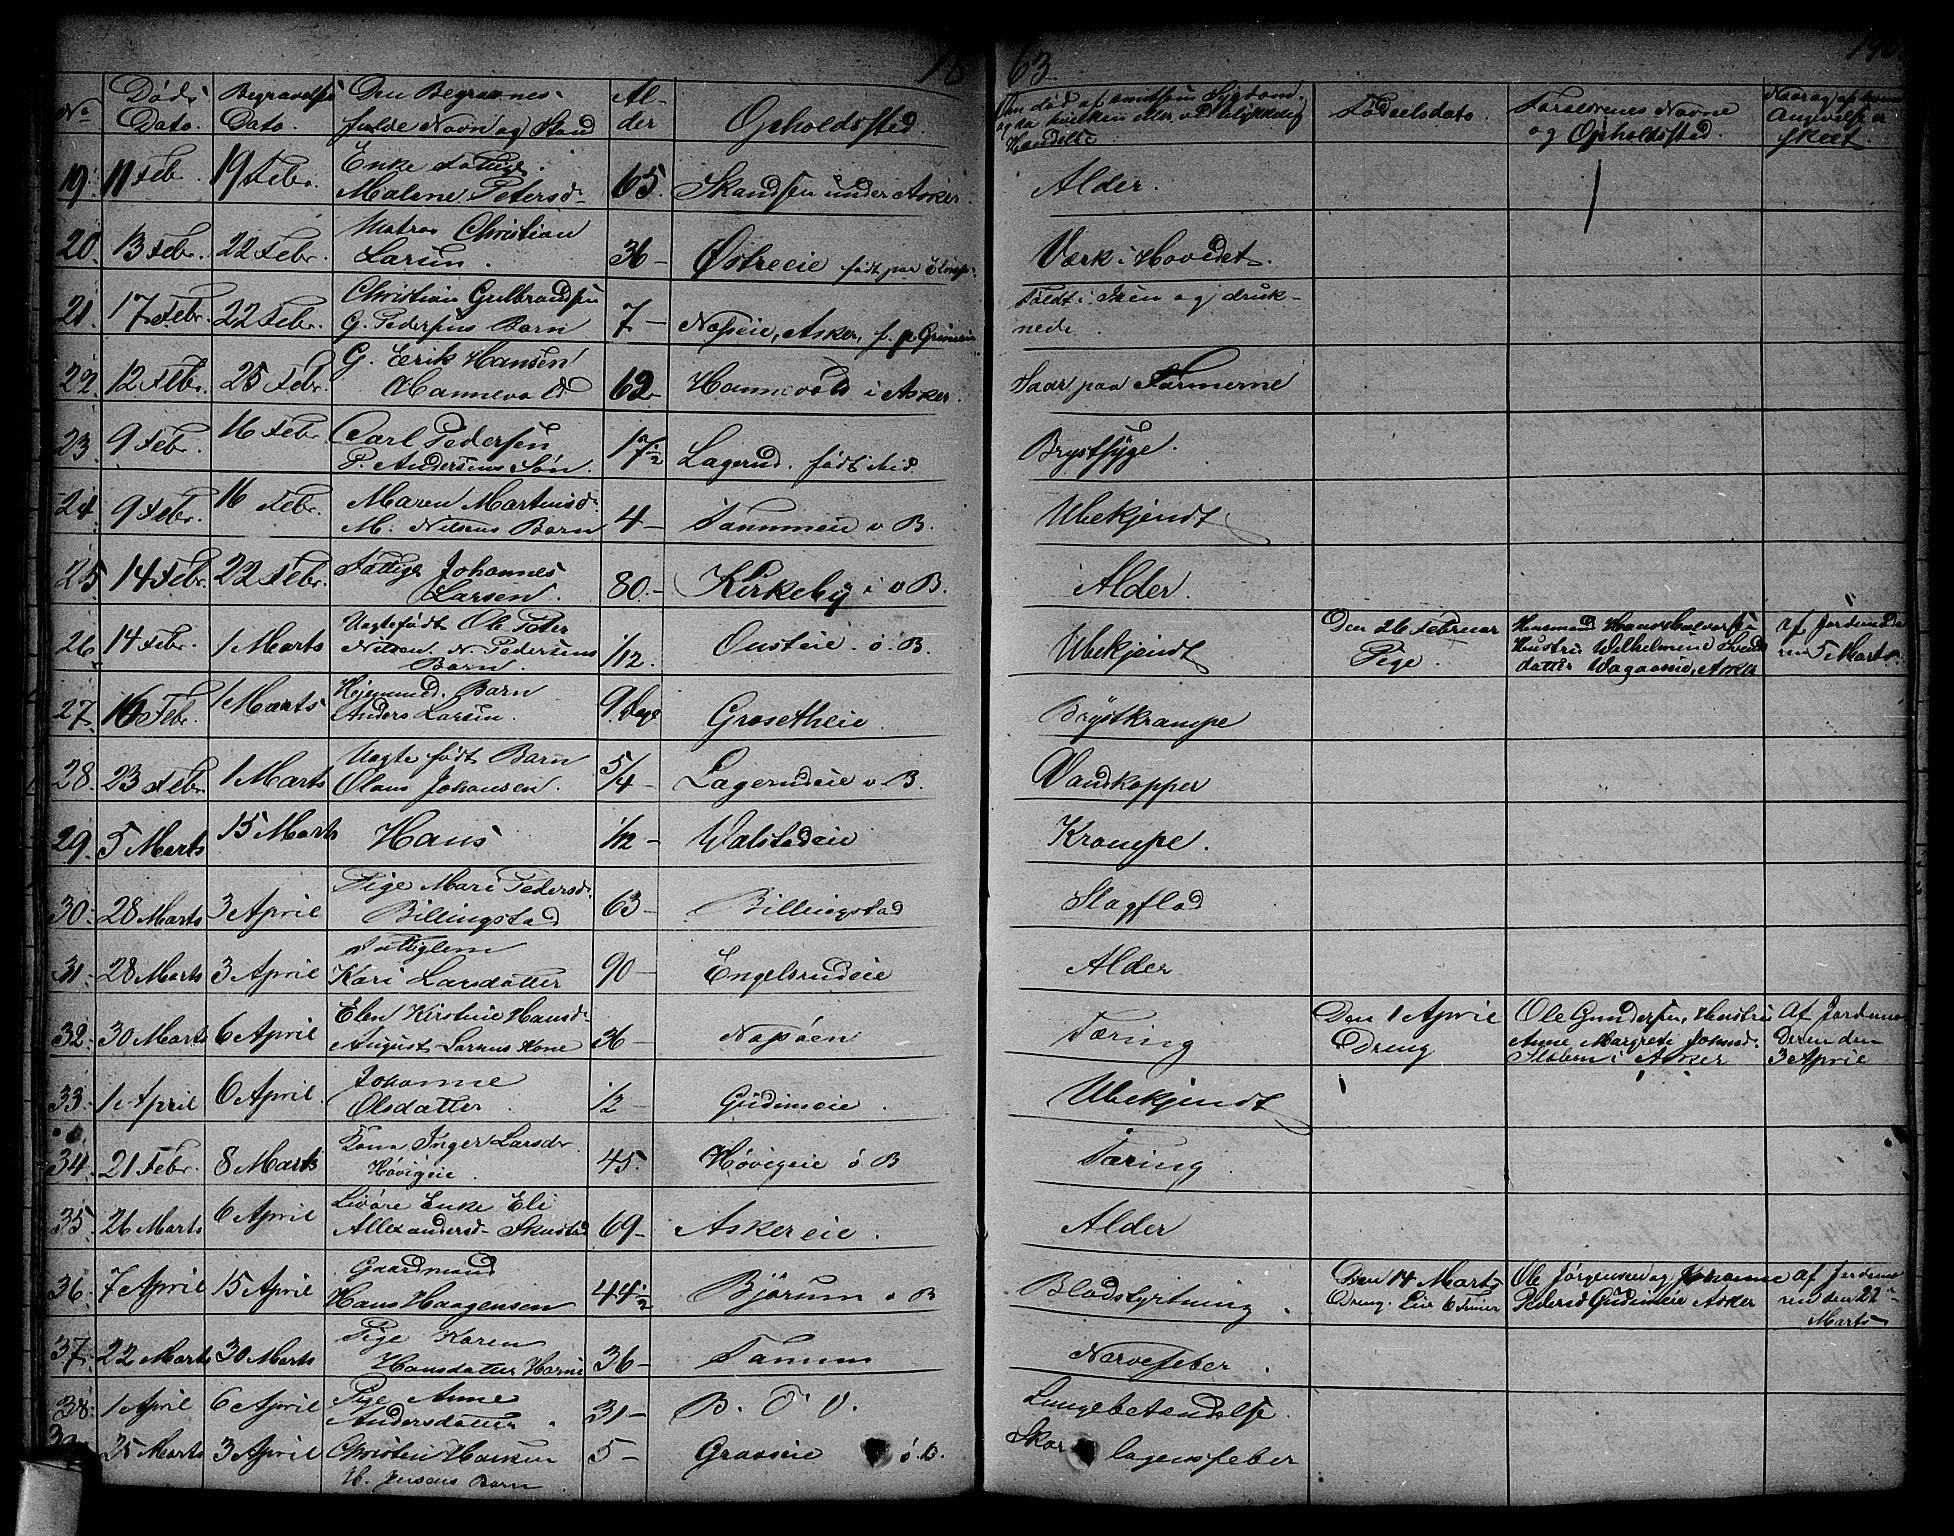 18 63 190.
No Døds Dato. Begravelses Dato. Den Begravnes fulde Navn og Stand Alder Opholdssted. Om død af smitsom Sygdom og da hvilken eller ved ulykkelig Hændelse Fødselsdato. Forældrenes Navne og Opholdssted. Naar og af hvem Angivelse er skeet.
19. 11 Febr. 19 Febr. Enke Fattige. Malene Petersd. 65. Skandsen under Asker. Alder.
20. 13 Febr. 22 Febr. Matros Christian Larsen. 36 – Østreeie født paa Værk i Hovedet.
21. 17 Febr. 22 Febr. Christian Gulbrandsen G. Pedersens Barn 7 – Næseie, Asker, f. p. Faldt i Søen og druknede.
22. 12 Febr. 25 Febr. G. Erik Hansen Hannevold 62 – Hannevold i Asker. Saar paa Tarmerne
23. 9 Febr. 16 Febr. Carl Pedersen P. Andersens Søn. 17 1/2 Lagerud. født ibid Brystsyge.
24. 9 Febr. 16 Febr. Maren Martinsd. M. Nilsens Barn 4 – Tanumeie v B. Ubekjendt
25 14 Febr. 22 Febr. Fattige Johannes Larsen. 80. – Kirkeby i v B. Alder.
26 14 Febr. 1 Marts Uægtefødt Ole Peter Nilsen N. Pedersens Barn 1/12. Ousteie ø. B. Ubekjendt Den 26 Februar Pige. Huusmand Hans Halvorsen Hustru Wilhelmine Svendsdatter Asker af Jordemoderen 5 Marts.
27 16 Febr. 1 Marts Hjemmed. Barn Anders Larsen. 9 Dage Grosetheie. Brystkrampe
28. 23 Febr. 1 Marts Uægte født Barn Olaus Johansen. 5/4 – Lagerudeie v. B. Vandkopper
29. 5 Marts 15 Marts Hans 1/12 – Walstadeie Krampe.
30. 28 Marts 3 April Pige Mari Pedersd. Billingstad 63 – Billingstad Slagflod
31. 28 Marts 3 April Fattiglem Kari Larsdatter 90 – Engelsrudeie Alder
32. 30 Marts 6 April Elen Kirstine Hansd. August Larsens Kone 36 – Næsøen Tæring Den 1 April Dreng Ole Gundersen, Hustru Anne Margrete Johnsd. i Asker Af Jordemoderen den 3 April
33. 1 April 6 April. Johanne Olsdatter. 1/2 – Gudimeie. Ubekjendt
34. 21 Febr. 8 Marts Kone Inger Larsdr Høvigeie. 45. Høvigeie ø B Tæring.
35. 26 Marts 6 April Enke Eli Allexandersd. Skustad 69 – Askereie. Alder
36. 7 April 15 April Gaardmand Hans Haagensen 44 1/2 Bjørum v B Blodstyrtning. Den 14 Marts Dreng. 6 Timer Ole Jørgensen og Johanne Pedersd Gudimeie Asker af Jordemoderen den 22 Marts
37. 22 Marts 30 Marts Pige Karen Hansdatter Horni 36 – Tanum Nervefeber.
38. 1 April 6 April Pige Anne Andersdatter. 31 – B. Ø V. Lungebetændelse.
39 25 Marts 3 April Christen Hansen H. Jensens Barn 5 – Graaeie ø. B. Skarlagensfeber